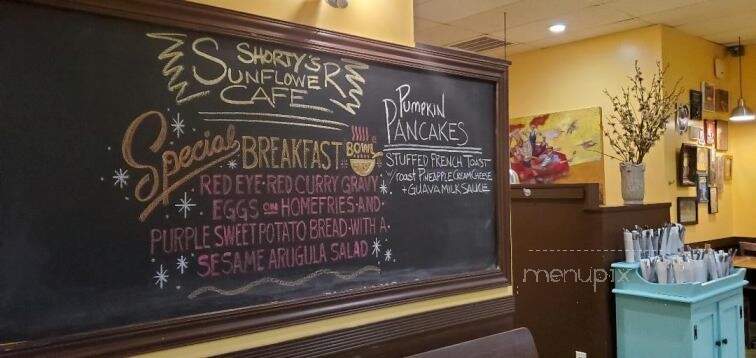 SHORTY'S
SUNFLOWER
CAFE
Special BREAKFAST BOWL
RED EYE-RED CURRY GRAVY
EGGS ON HOMEFRIES-AND-
PURPLE SWEET POTATO BREAD-WITH A-
SESAME ARUGULA SALAD
PUMPKIN
PANCAKES
STUFFED FRENCH TOAST
w/ roast PINEAPPLE CREAM CHEESE
+ GUAVA MILK SAUCE
menupix